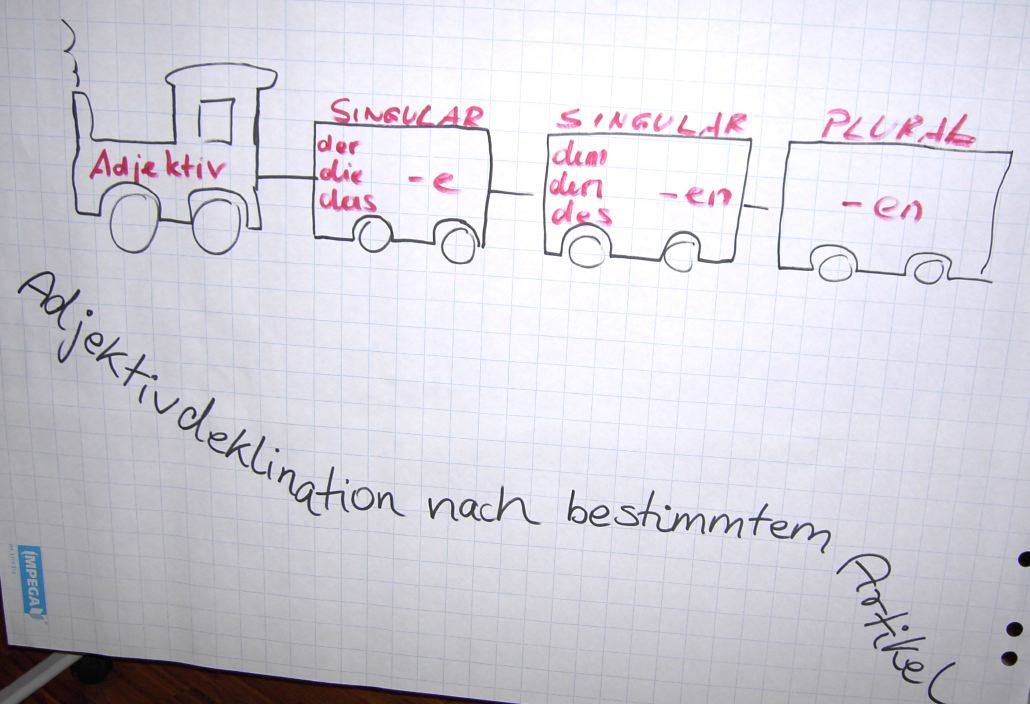 SINGULAR
SINGULAR
PLURAL
Adjektiv
der
die
das
-e
dem
den
des
-en
-en
Adjektivdeklination nach bestimmtem Artikel
IMPEGA